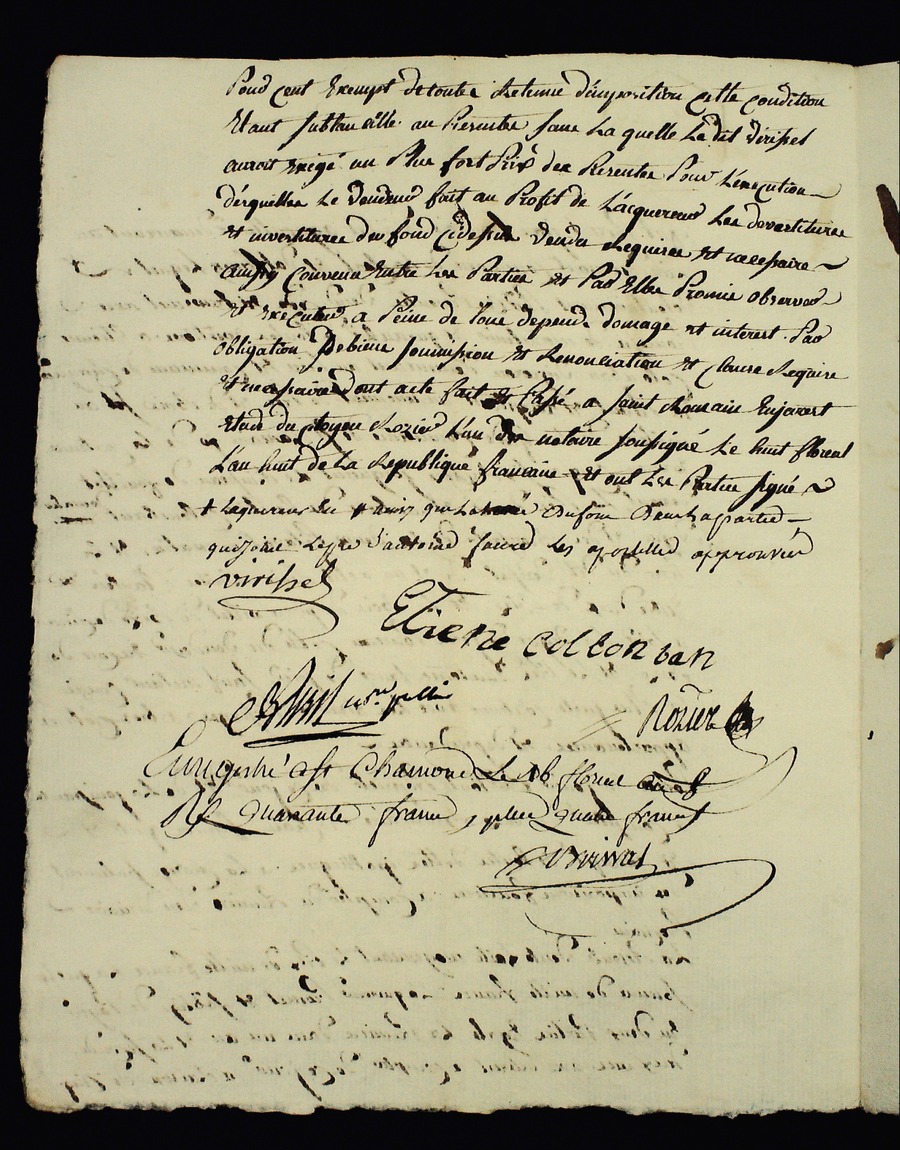 Pour cent exempt de toute Retenue d'imposition cette condition
Etant substancielle au Presentes sans La quelle Le dit Virissel
auroit exigé un Plus fort Prix des Presentes Pour L'execution
desquelles Le Vendeur fait au Profit de L'acquereur Les devestitures
et investitures du fond cidessus Vendu Requises et necessaire
ainssy convenu Entre Les Parties et Par Elles Promis observer
et executer a Peine de Tous depends domage et interest Par
obligation De biens soumission et Renonciation et clause Requise
et necessaire Dont acte fait et Passé a saint Romain Enjarest
etude du citoyen Rozier L'un des notaire soussigné Le huit floreal
L'an huit de La Republique francaise et ont Les Parties signé
+ Lacquereur + ainsy que
approuvée
virissel
ETiene colconban
Rozier
Enregistré a St Chamond Le 16 floreal an 8
R quarante francs, plus quatre francs